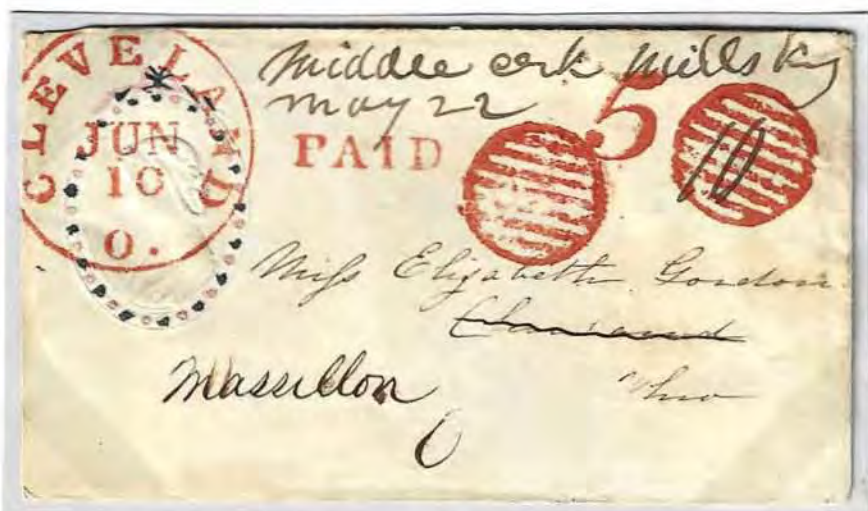 CLEVELAND
JUN
10
O.
Middle crk Mills Ky
May 22
PAID
5
10
Miss Elizabeth Gordon
Cleaveland
Massillon
Ohio